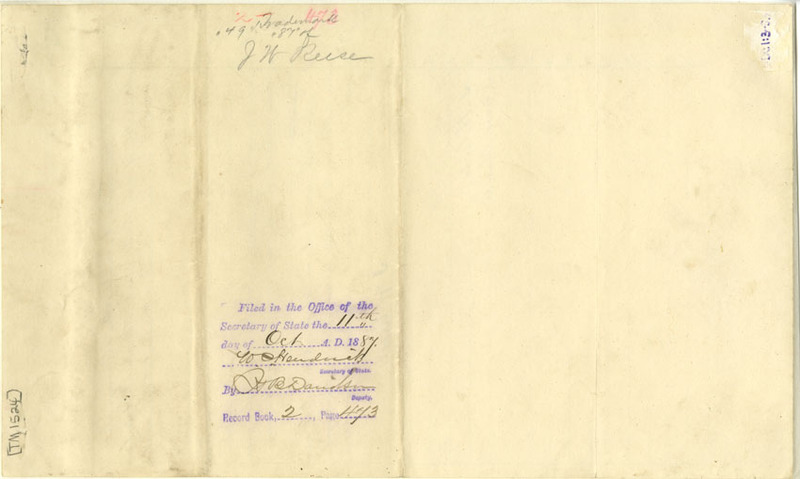 2 473
49 Trademark
87 of
J W Reese
Filed in the Office of the
Secretary of State the 11th
day of Oct. A. D. 1887.
W C Hendricks
Secretary of State.
By H B Davidson
Deputy.
Record Book, 2, Page 473
[TM 1524]